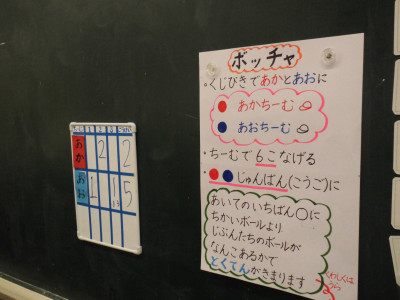 ボッチャ
・くじびきであかとあおに
あかちーむ
あおちーむ
・ちーむで6こなげる
・じゅんばん(こうご)に
あいてのいちばん〇に
ちかいボールより
じぶんたちのボールが
なんこあるかで
とくてんがきまります
くわしくは
うら
1 2 3
あか 2 2
あお 1 5